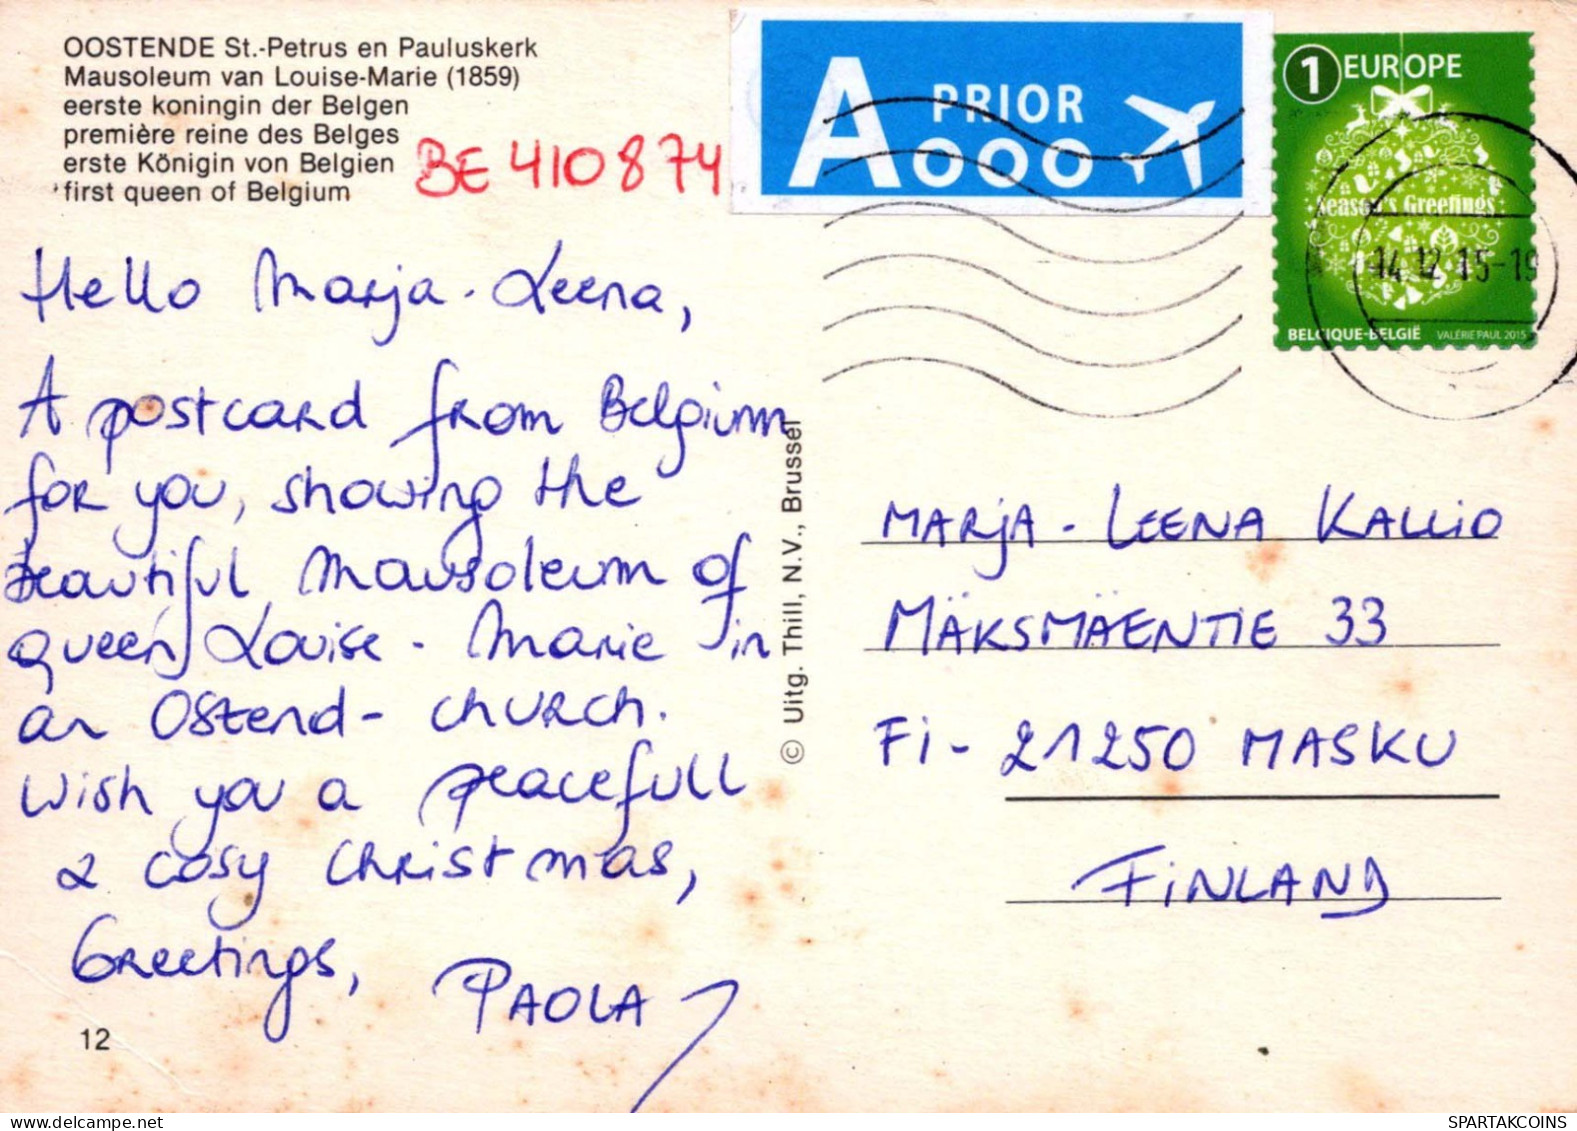 OOSTENDE St.-Petrus en Pauluskerk
Mausoleum van Louise-Marie (1859)
eerste koningin der Belgen
première reine des Belges
erste Königin von Belgien
first queen of Belgium
BE 410874
A PRIOR
1 EUROPE
Season's Greetings
14.12.15-19
BELGIQUE-BELGIË
VALÉRIE PAUL 2015
Hello Marja-Leena,
A postcard from Belgium
for you, showing the
beautiful Mausoleum of
queen Louise-Marie in
an Ostend-church.
Wish you a peacefull
& cosy Christmas,
Greetings,
PAOLA
12
© Uitg. Thill, N.V., Brussel
MARJA-LEENA KALLIO
MÄKSMÄENTIE 33
Fi-21250 MASKU
FINLAND
SPARTAKCOINS